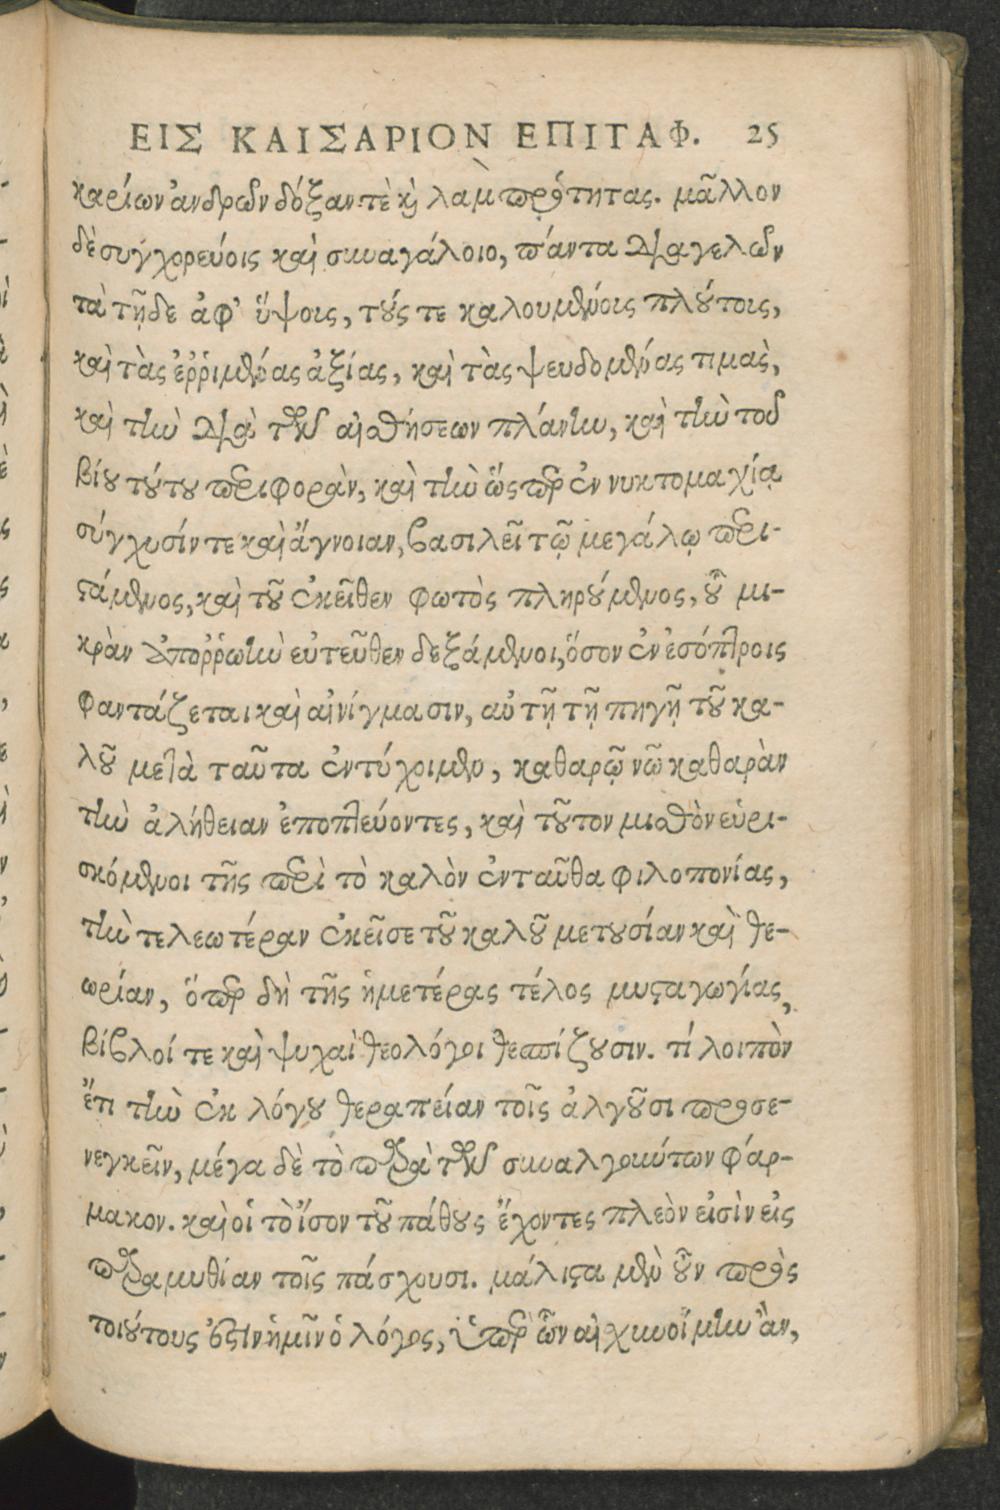 ΕΙΣ ΚΑΙΣΑΡΙΟΝ ΕΠΙΤΑΦ. 25
καρίων ἀνδρῶν δόξαν τὲ καὶ λαμπρότητας. μᾶλλον
δὲ συγχορεύοις καὶ συναγάλοιο, πάντα διαγελῶν
τὰ τῇδε ἀφ’ ὕψοις, τούς τε καλουμένοις πλούτοις,
καὶ τὰς ἐῤῥιμένας ἀξίας, καὶ τὰς ψευδομένας τιμὰς,
καὶ τὴν διὰ τῶν αἰσθήσεων πλάνην, καὶ τὴν τοῦ
βίου τούτου περιφορὰν, καὶ τὴν ὥσπερ ἐν νυκτομαχίᾳ
σύγχυσίν τε καὶ ἄγνοιαν, βασιλεῖ τῷ μεγάλῳ περι-
στάμενος, καὶ τοῦ ἐκεῖθεν φωτὸς πληρούμενος, οὗ μι-
κρὰν ἀποῤῥωὴν εὐτεῦθεν δεξάμενοι, ὅσον ἐν ἐσόπτροις
φαντάζεται καὶ αἰνίγμασιν, αὐτῇ τῇ πηγῇ τοῦ κα-
λοῦ μετὰ ταῦτα ἐντύχοιμεν, καθαρῷ νῷ καθαρὰν
τὴν ἀλήθειαν ἐποπτεύοντες, καὶ τοῦτον μισθὸν εὑρι-
σκόμενοι τῆς περὶ τὸ καλὸν ἐνταῦθα φιλοπονίας,
τὴν τελεωτέραν ἐκεῖσε τοῦ καλοῦ μετουσίαν καὶ θε-
ωρίαν, ὅπερ δὴ τῆς ἡμετέρας τέλος μυσταγωγίας,
βίβλοί τε καὶ ψυχαὶ θεολόγοι θεσπίζουσιν. τί λοιπὸν
ἔτι τὴν ἐκ λόγου θεραπείαν τοῖς ἀλγοῦσι προσε-
νεγκεῖν, μέγα δὲ τὸ παρὰ τῶν συναλγούντων φάρ-
μακον. καὶ οἱ τὸ ἴσον τοῦ πάθους ἔχοντες πλεὸν εἰσὶν εἰς
παραμυθίαν τοῖς πάσχουσι. μάλιστα μὲν οὖν πρὸς
τοιούτους ἐστὶν ἡμῖν ὁ λόγος, ὑπὲρ ὧν αἰχυνοίμην ἂν,